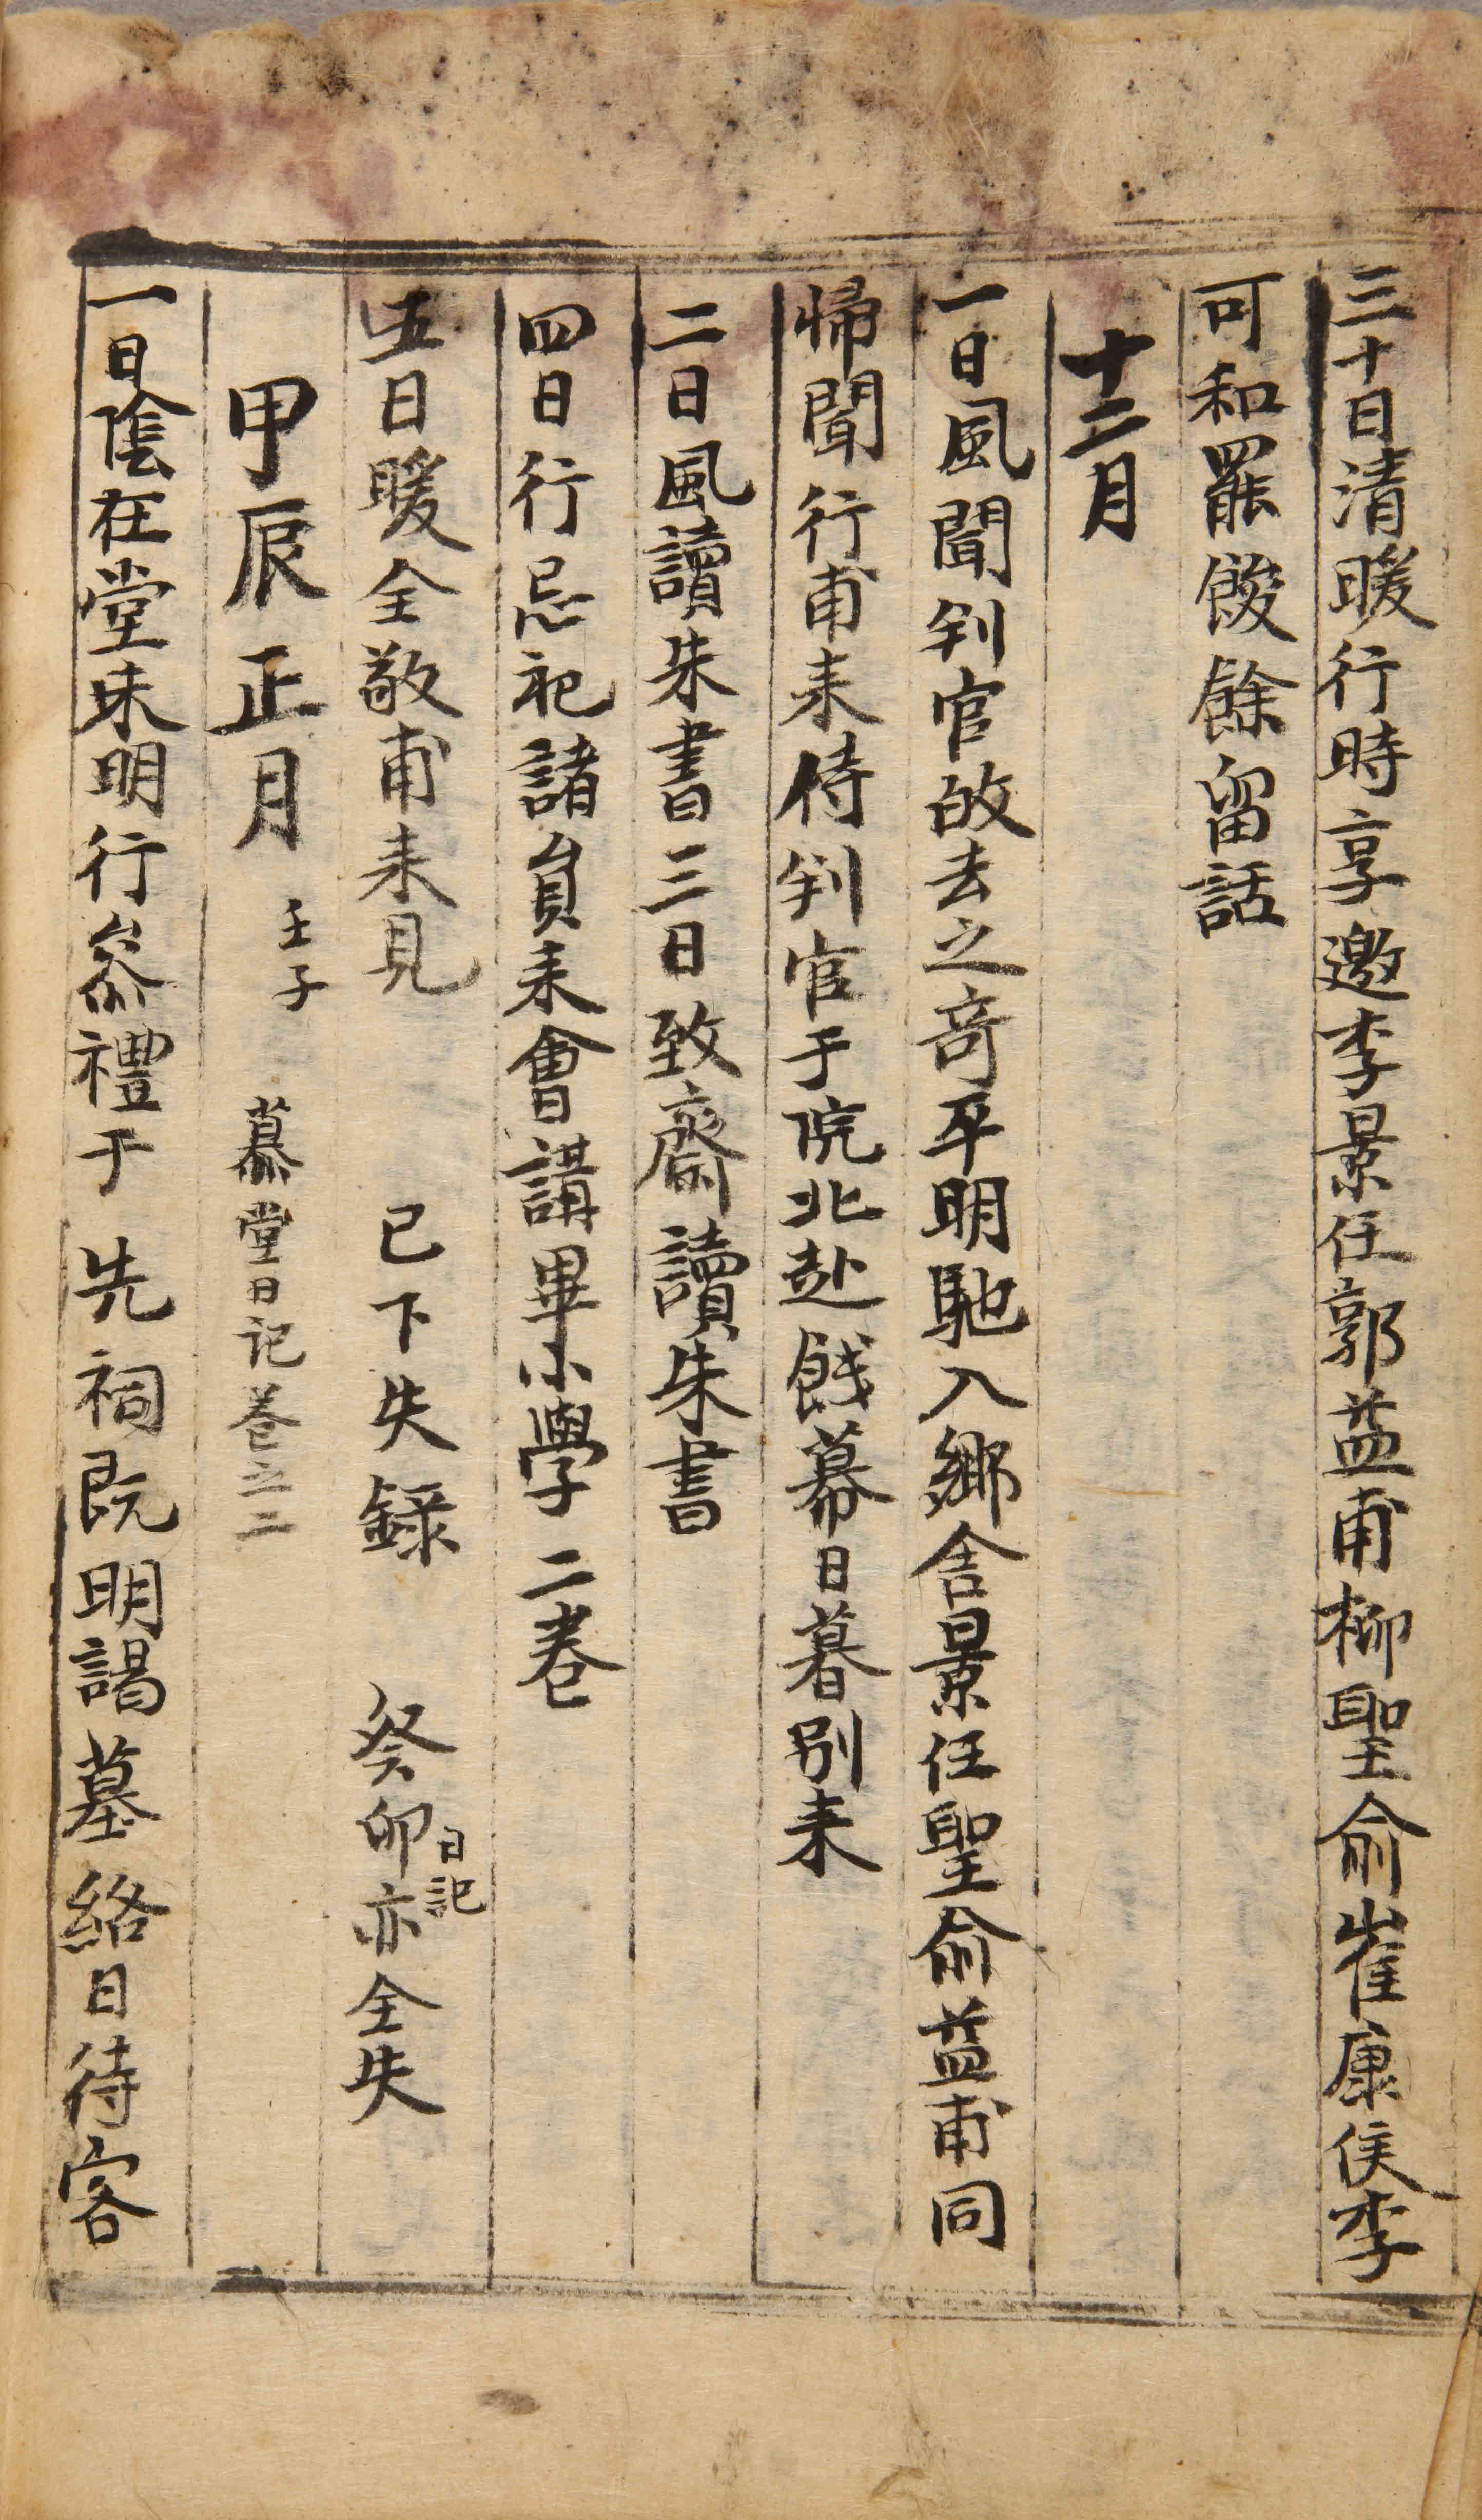 三十日清暖行時享邀李景任郭益甫柳聖俞崔康侯李
可和罷餕餘留話
十二月
一日風聞判官故去之奇平明馳入鄉舍景任聖俞益甫同
帰聞行甫来侍判官于院北赴餞幕日暮別来
二日風讀朱書三日致齋讀朱書
四日行忌祀諸員来會講畢小學二卷
五日暖全敬甫来見 已下失録 癸卯日記亦全失
甲辰正月 壬子 慕堂日记卷之二
一日陰在堂未明行叅禮于先祠既明謁墓終日待客